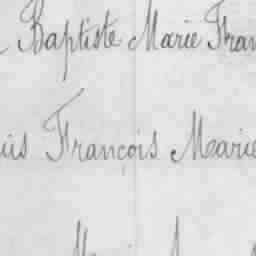 Baptiste Marie Fran
uis François Marie